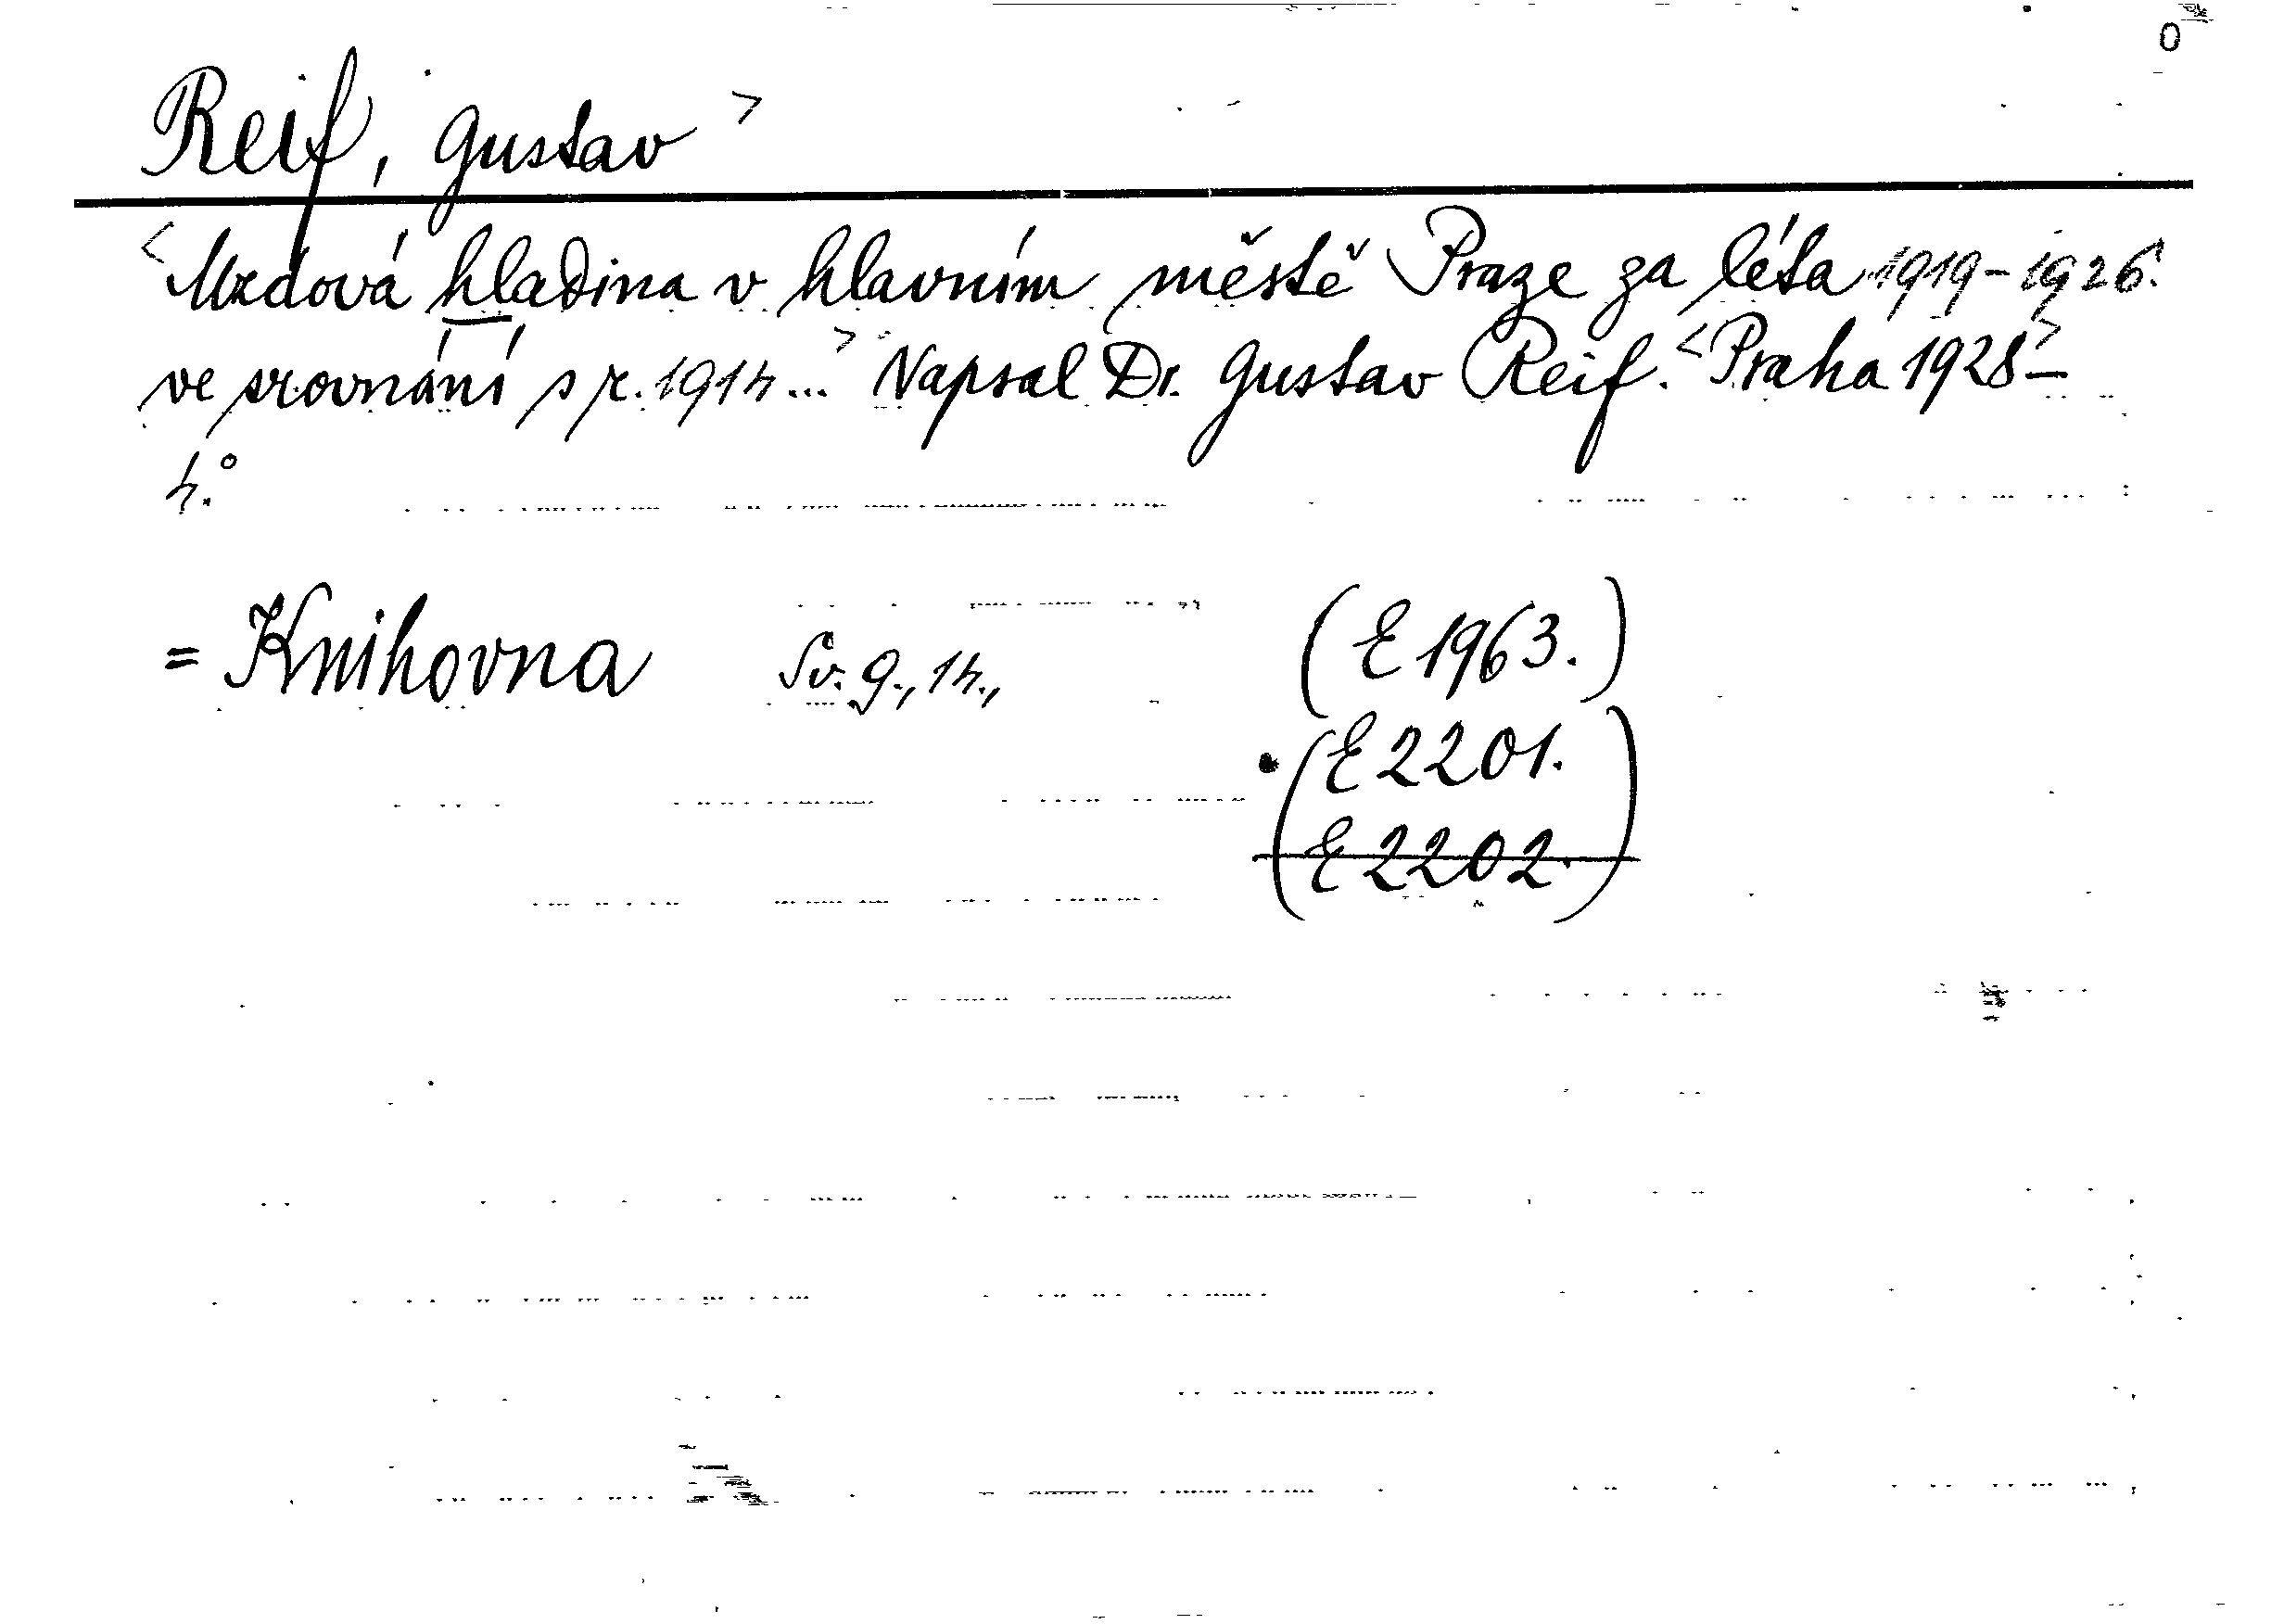 0
Reif, Gustav >
< Mzdová hladina v hlavním městě Praze za léta 1919-1926.
ve srovnání s r. 1914... > Napsal Dr. Gustav Reif. < Praha 1928 > —
4.°
= Knihovna Sv. 9., 14., (E 1963.)
(E 2201.
E 2202.)